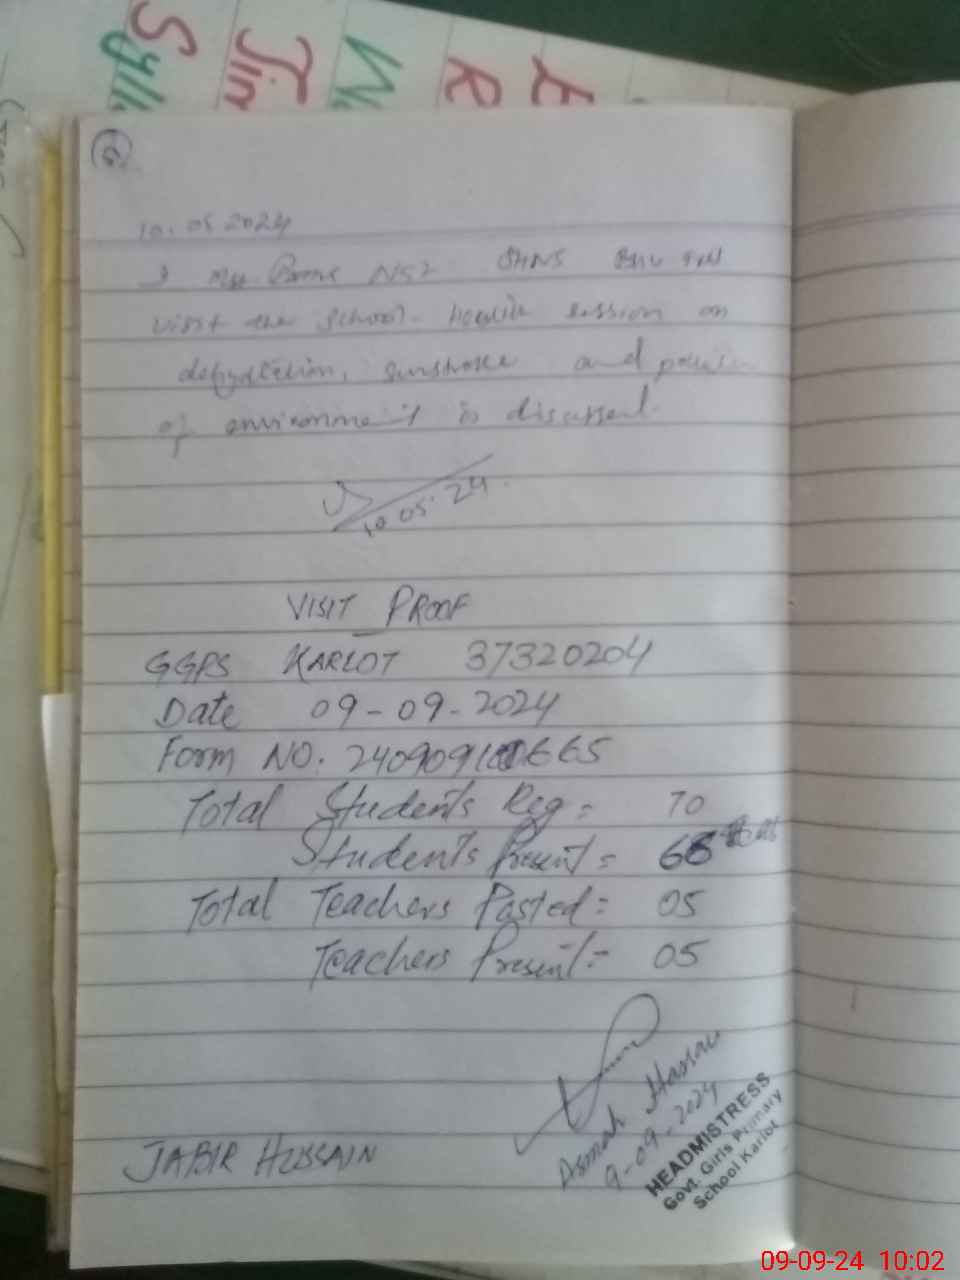 6
10.05 2024
I SHNS
visit the school. Health session on
dehydration, sunstroke and
of environment is discussed.
10.05.24
VISIT PROOF
GGPS KARLOT 37320204
Date 09-09-2024
Form NO.
Total Students Reg = 70
Students Present =
Total Teachers Posted = 05
Teachers Present = 05
Asmah Hassan
9-09-2024
HEADMISTRESS
Govt. Girls Primary
School Karlot
JABIR HUSSAIN
09-09-24 10:02